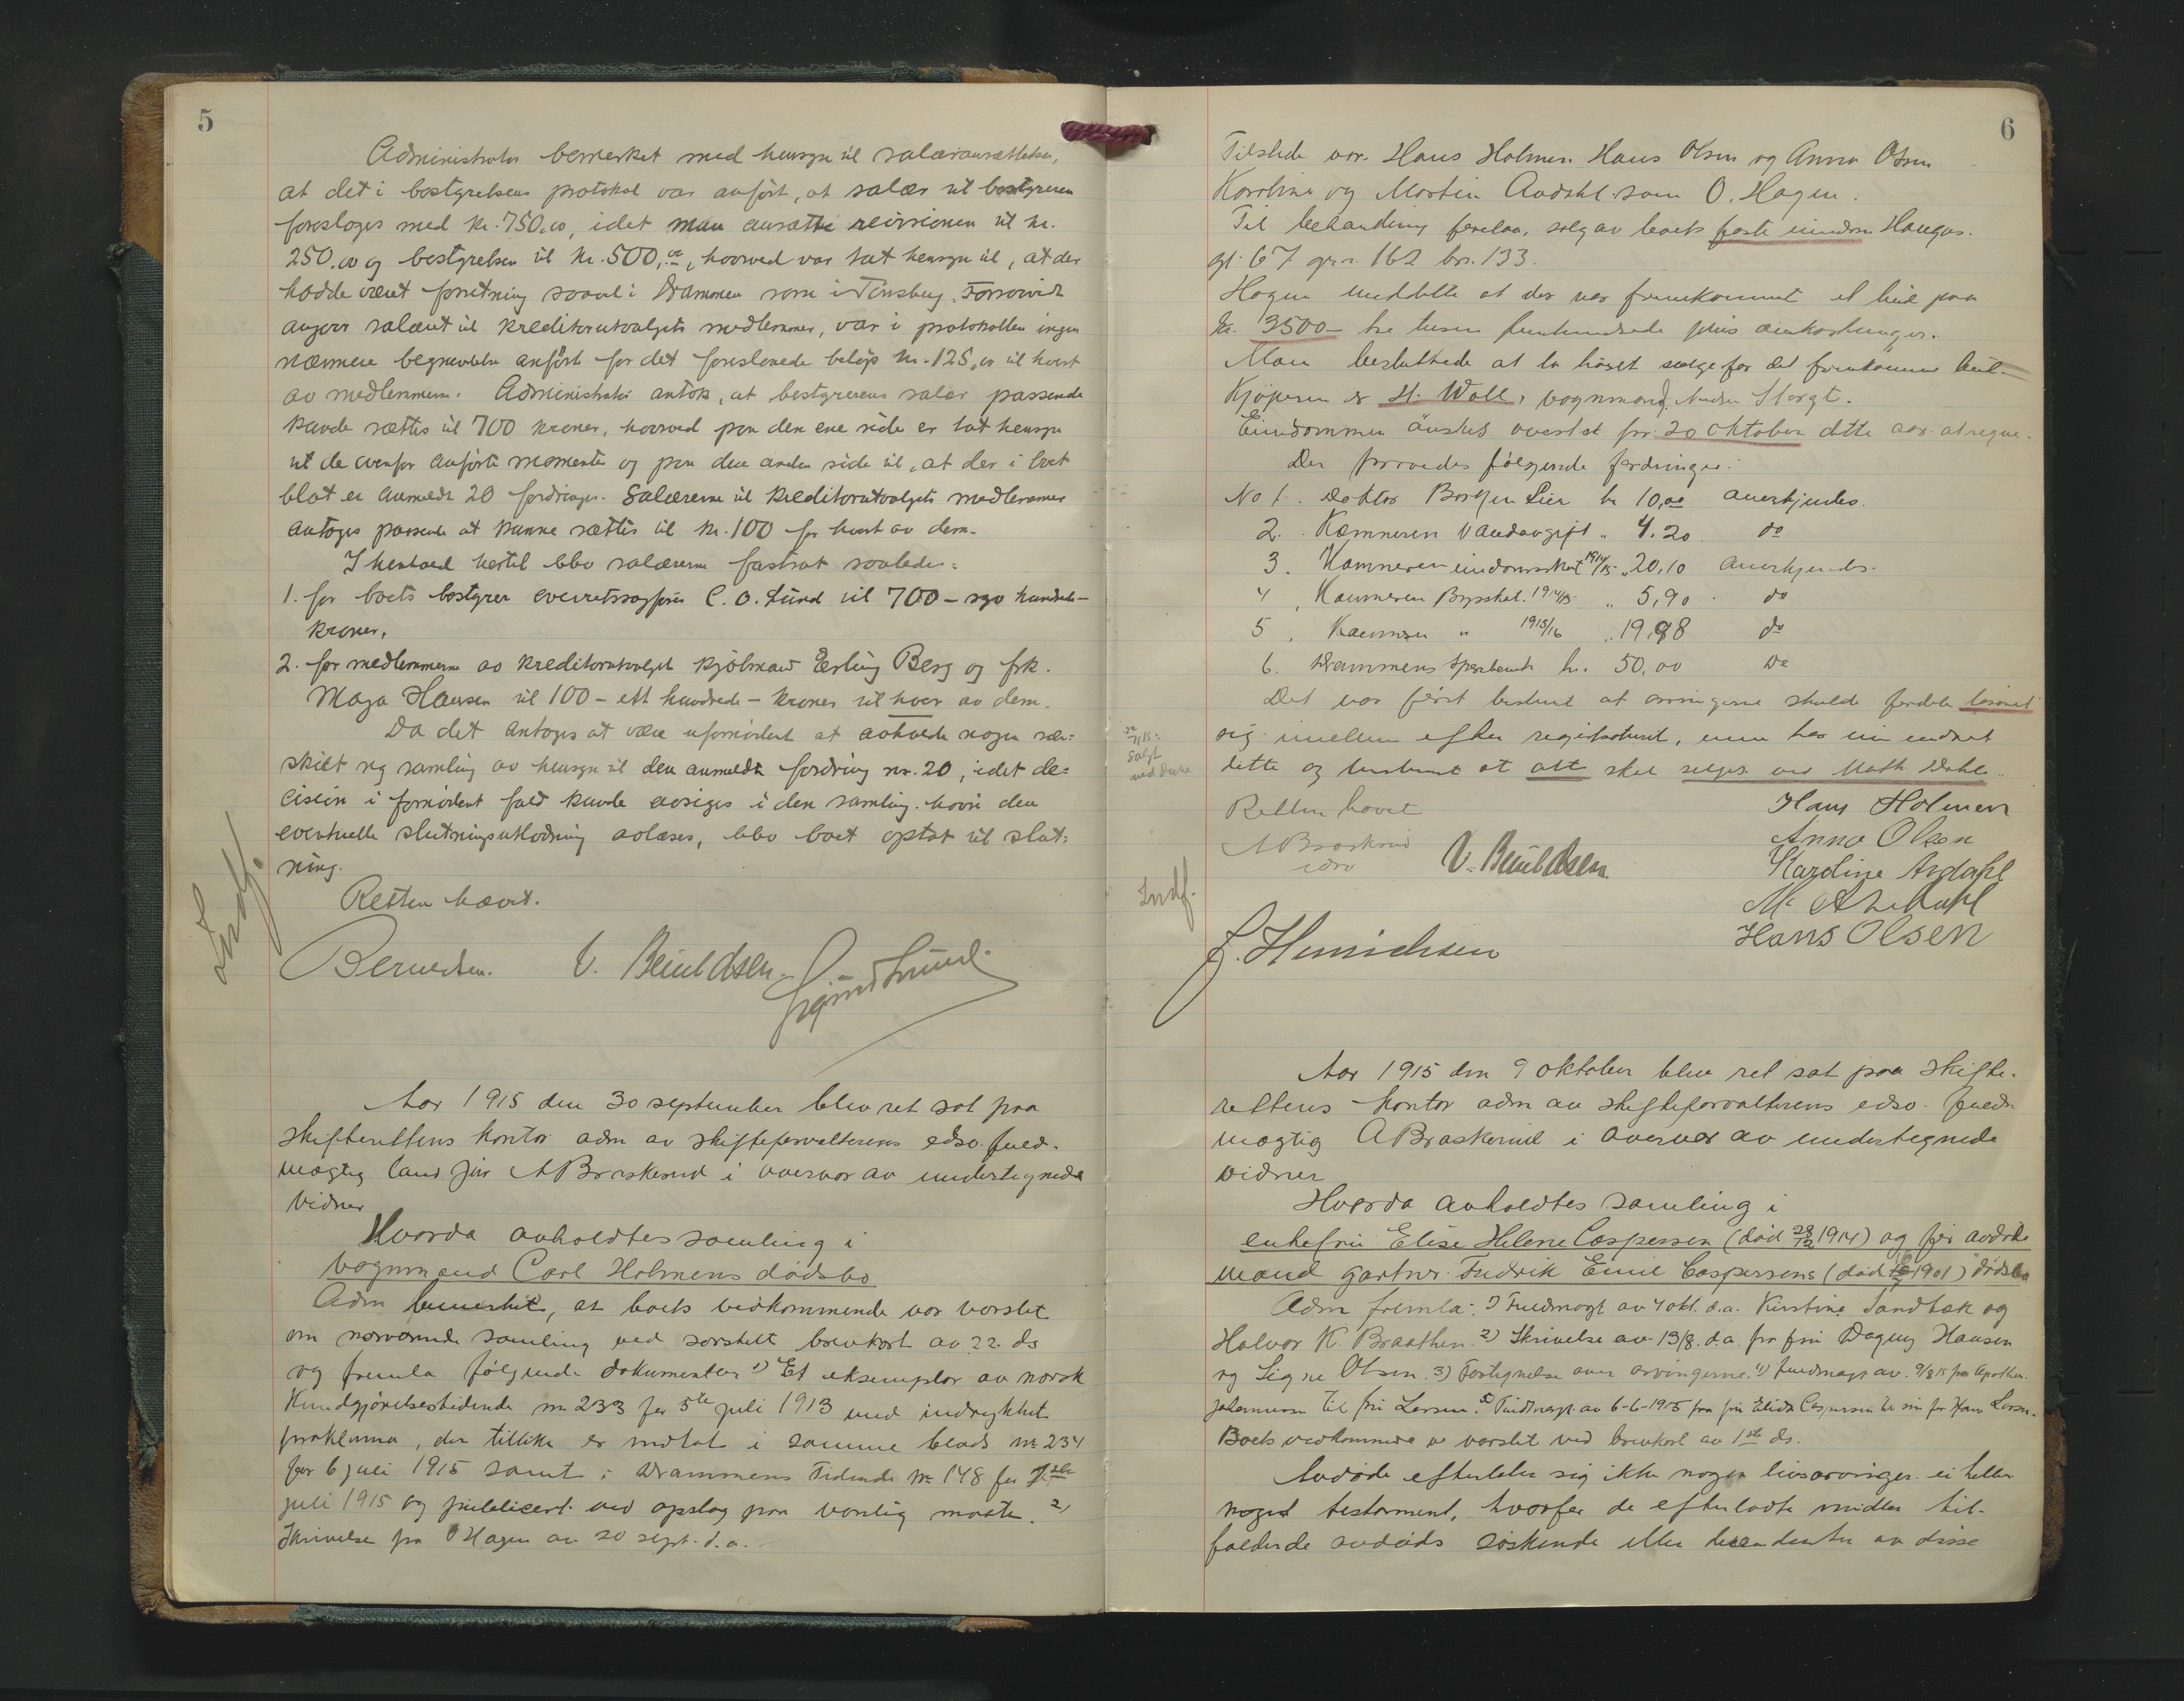 5
Administrator bemerket med hensyn til salæransættelsen,
at det i bostyrelsens protokol var anført, at salær til bostyreren
foresloges med kr. 750,00, idet man ansatte revisionen til kr.
250.00 og bostyrelsen til kr. 500,00, hvorved var tat hensyn til, at der
hadde været forretning saavel i Drammen som i Tønsberg. Forsaavidt
angaar salæret til kreditorutvalgets medlemmer, var i protokollen ingen
nærmere begrundelse anført for det foreslaaede beløp kr. 125,00 til hvert
av medlemmerne. Administrator antok, at bestyrerens salær passende
kunde sættes til 700 kroner, hvorved paa den ene side er tat hensyn
til de ovenfor anførte momenter og paa den anden side til, at der i boet
blot er anmeldt 20 fordringer. Salærerne til kreditorutvalgets medlemmer
antoges passende at kunne sættes til kr. 100 for hvert av dem.
I henhold hertil blev salærerne fastsat saaledes:
1. for boets bestyrer overretssagfører C. O. Lund til 700 – syv hundrede –
kroner.
2. for medlemmerne av kreditorutvalget kjøbmand Erling Berg og frk.
Maja Hansen til 100 – ett hundrede – kroner til hver av dem.
Da det antoges at være ufornødent at avholde nogen sær-
skilt ny samling av hensyn til den anmeldte fordring nr. 20, idet de-
cision i fornødent fald kunde avsiges i den samling, hvori den
eventuelle slutningsutlodning avlæses, blev boet optat til slut-
ning.
Retten hævet.
Indf.
V. Beuldsen. Sigurd Lund.
Aar 1915 den 30 september blev ret sat paa
skifterettens kontor adm av skifteforvalterens edsv. fuld-
mægtig cand jur A Braskerud i overvær av undertegnede
vidner
Hvorda avholdtes samling i
vognmand Carl Holmens dødsbo
Adm bemerket, at boets vedkommende var varslet
om nærværende samling ved særskilt brevkort av 22 ds
og fremla følgende dokumenter 1) Et eksemplar av norsk
Kundgjørelsestidende nr 233 for 5te juli 1913 med indrykket
proklama, der tillike er indtat i samme blads nr 234
for 6 juli 1915 samt i Drammens Tidende nr 148 for
juli 1915 og publicert ved opslag paa vanlig maate. 2)
Skrivelse fra O Hagen av 20 sept. d.a.
6
Tilstede var. Hans Holmen. Hans Olsen og Anna Olsen
Karoline og Martin Aadahl. som O. Hagen.
Til behandling forelaa, salg av boets faste eiendom Haugas.
gt. 67 gnr. 162 bnr. 133.
Hagen meddelte at der var fremkommet et bud paa
kr. 3500 – tre tusen femhundrede plus omkostninger.
Man besluttede at la huset sælge for det fremkomne bud.
Kjøperen er H. Woll, vognmand, Storgt.
Eiendommen ønskes overtat fra 20 oktober dette aar at regne.
Der prøvedes følgende fordringer:
No 1. Doktor Borgen Lier kr 10,00 anerkjendes.
2. Kæmneren Vandavgift „ 4.20 do
3. Kæmneren eiendomsskat 1914/15 „ 20,10 anerkjendes.
4, Kæmneren Byskat. 1914/15 „ 5,90 do
5, Kæmneren „ 1915/16 „ 19,98 do
6. Drammens Sparebank kr. 50,00 do
Det var først bestemt at arvingerne skulde fordele løsøret
sig imellem efter registreret, men har nu endret
dette og bestemt at alt skal selges ved Math. Dahle.
Solgt
Retten hævet
A Braskerud
edsv
V. Beuldsen.
Hans Holmen
Anna Olsen
Karoline Aadahl
Hans Olsen
Indf.
J. Hinrichsen
Aar 1915 den 9 oktober blev ret sat paa skifte-
rettens kontor adm av skifteforvalterens edsv. fuld-
mægtig A Braskerud i overvær av undertegnede
vidner
Hvorda avholdtes samling i
enkefru Elise Helene Caspersen (død 28/12 1914) og før avdøde
mand gartner Fredrik Emil Caspersens (død 1901) dødsbo
Adm fremla: 1) Fuldmagt av 4 okt. d.a. Kirstine Sandbæk og
Halvor K. Braathen. 2) Skrivelse av 13/8. d.a. fra fru Dagny Hansen
og Signe Olsen. 3) Fortegnelse over arvingerne. 4) fuldmagt av. 9/8 15 fra Apotheker
Johannesen til fru Larsen. 5) Fuldmagt av 6-6-1915 fra fru Elida Caspersen til sin fr Hans Larsen.
Boets vedkommende er varslet ved brevkort av 1ste ds.
Avdøde efterlater sig ikke nogen livsarvinger. ei heller
noget testament, hvorfor de efterlatte midler til-
falder de avdødes søskende eller descendenter av disse